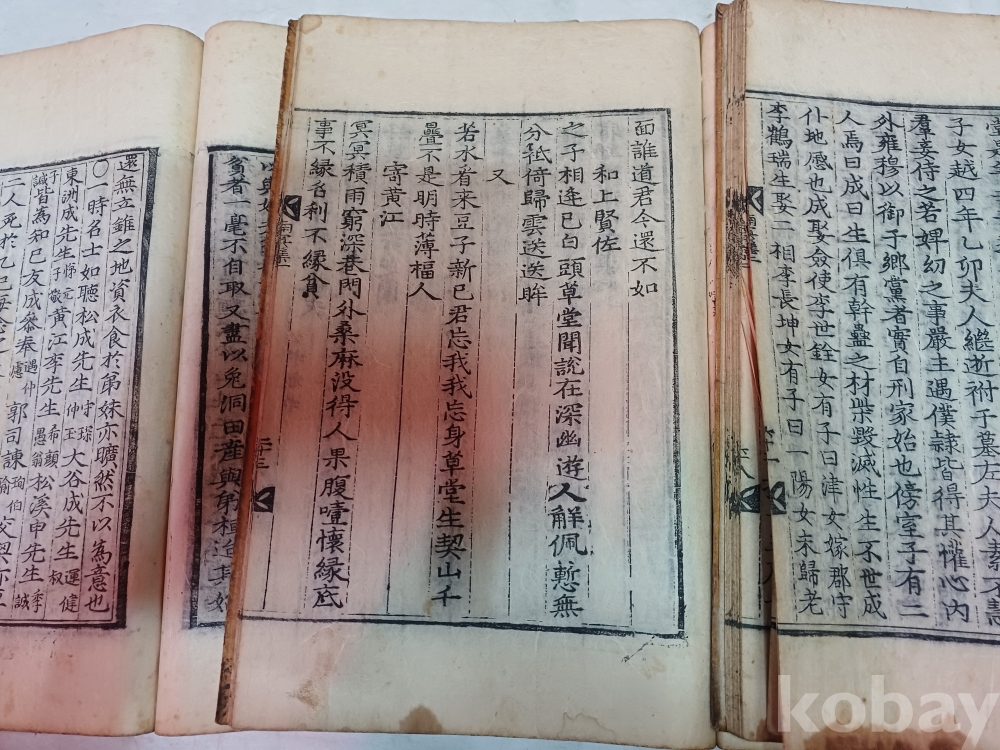 子女越四年乙卯夫人繼逝祔于墓左夫人素不
羣妾侍之若婢幼之事嚴主遇僕隷皆得其懽心內
外雍穆以御于鄉黨者實自刑家始也傍室子有二
人焉曰成曰生俱有幹蠱之材柴毁滅性生不世成
仕地愿也成娶僉使李世銓女有子曰津女嫁郡守
李鶴瑞生娶二相李長坤女有子曰一陽女未歸老
面誰道君今還不如
和上賢佐
之子相逢已白頭草堂聞說在深幽遊人解佩慙無
分祇倚歸雲送送眸
又
若水看來豆子新已君忘我我忘身草堂生契山千
疊不是明時薄福人
寄黃江
冥冥積雨窮深巷門外桑麻没得人果腹噎懷緣底
事不緣名利不緣貧
貧者一毫不自取又盡以兔洞田産與
二十三
還無立錐之地資衣食於弟妹亦曠然不以為意也
〇一時名士如聽松成先生守琛仲玉大谷成先生運健叔
東洲成先生悌元子敬黃江李先生希顔愚翁松溪申先生季誠
子誠皆為知己友成叅奉遇仲慮郭司諫珣伯瑜
二人死於乙巳
kobay